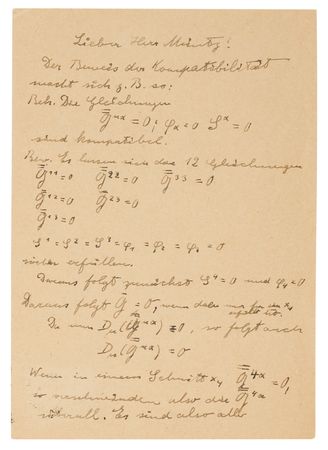 Lieber Herr Müntz!
Der Beweis der Kompatibilität
macht sich z. B. so:
Beh. Die Gleichungen
G̿^{μα} = 0; φ_α = 0 S^α = 0
sind kompatibel.
Bew. Es lassen sich die 12 Gleichungen
G̿^{11} = 0 G̿^{22} = 0 G̿^{33} = 0
G̿^{12} = 0 G̿^{23} = 0
G̿^{13} = 0
S^1 = S^2 = S^3 = φ_1 = φ_2 = φ_3 = 0
sicher erfüllen.
Daraus folgt zunächst S^4 = 0 und φ_4 = 0
Daraus folgt G̿ = 0, wenn dies nur für ein x_4
erfüllt ist.
Da nun D_μ(G̿^{μα}) = 0, so folgt auch
D_μ(G̿^{μα}) = 0
Wenn in einem Schnitt x_4 G̿^{4α} = 0,
so verschwinden also die G̿^{4α}
überall. Es sind also alle